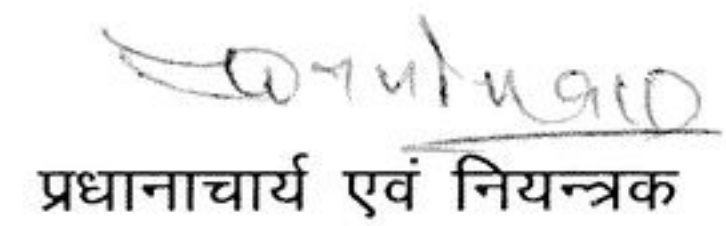 प्रधानाचार्य एवं नियन्त्रक